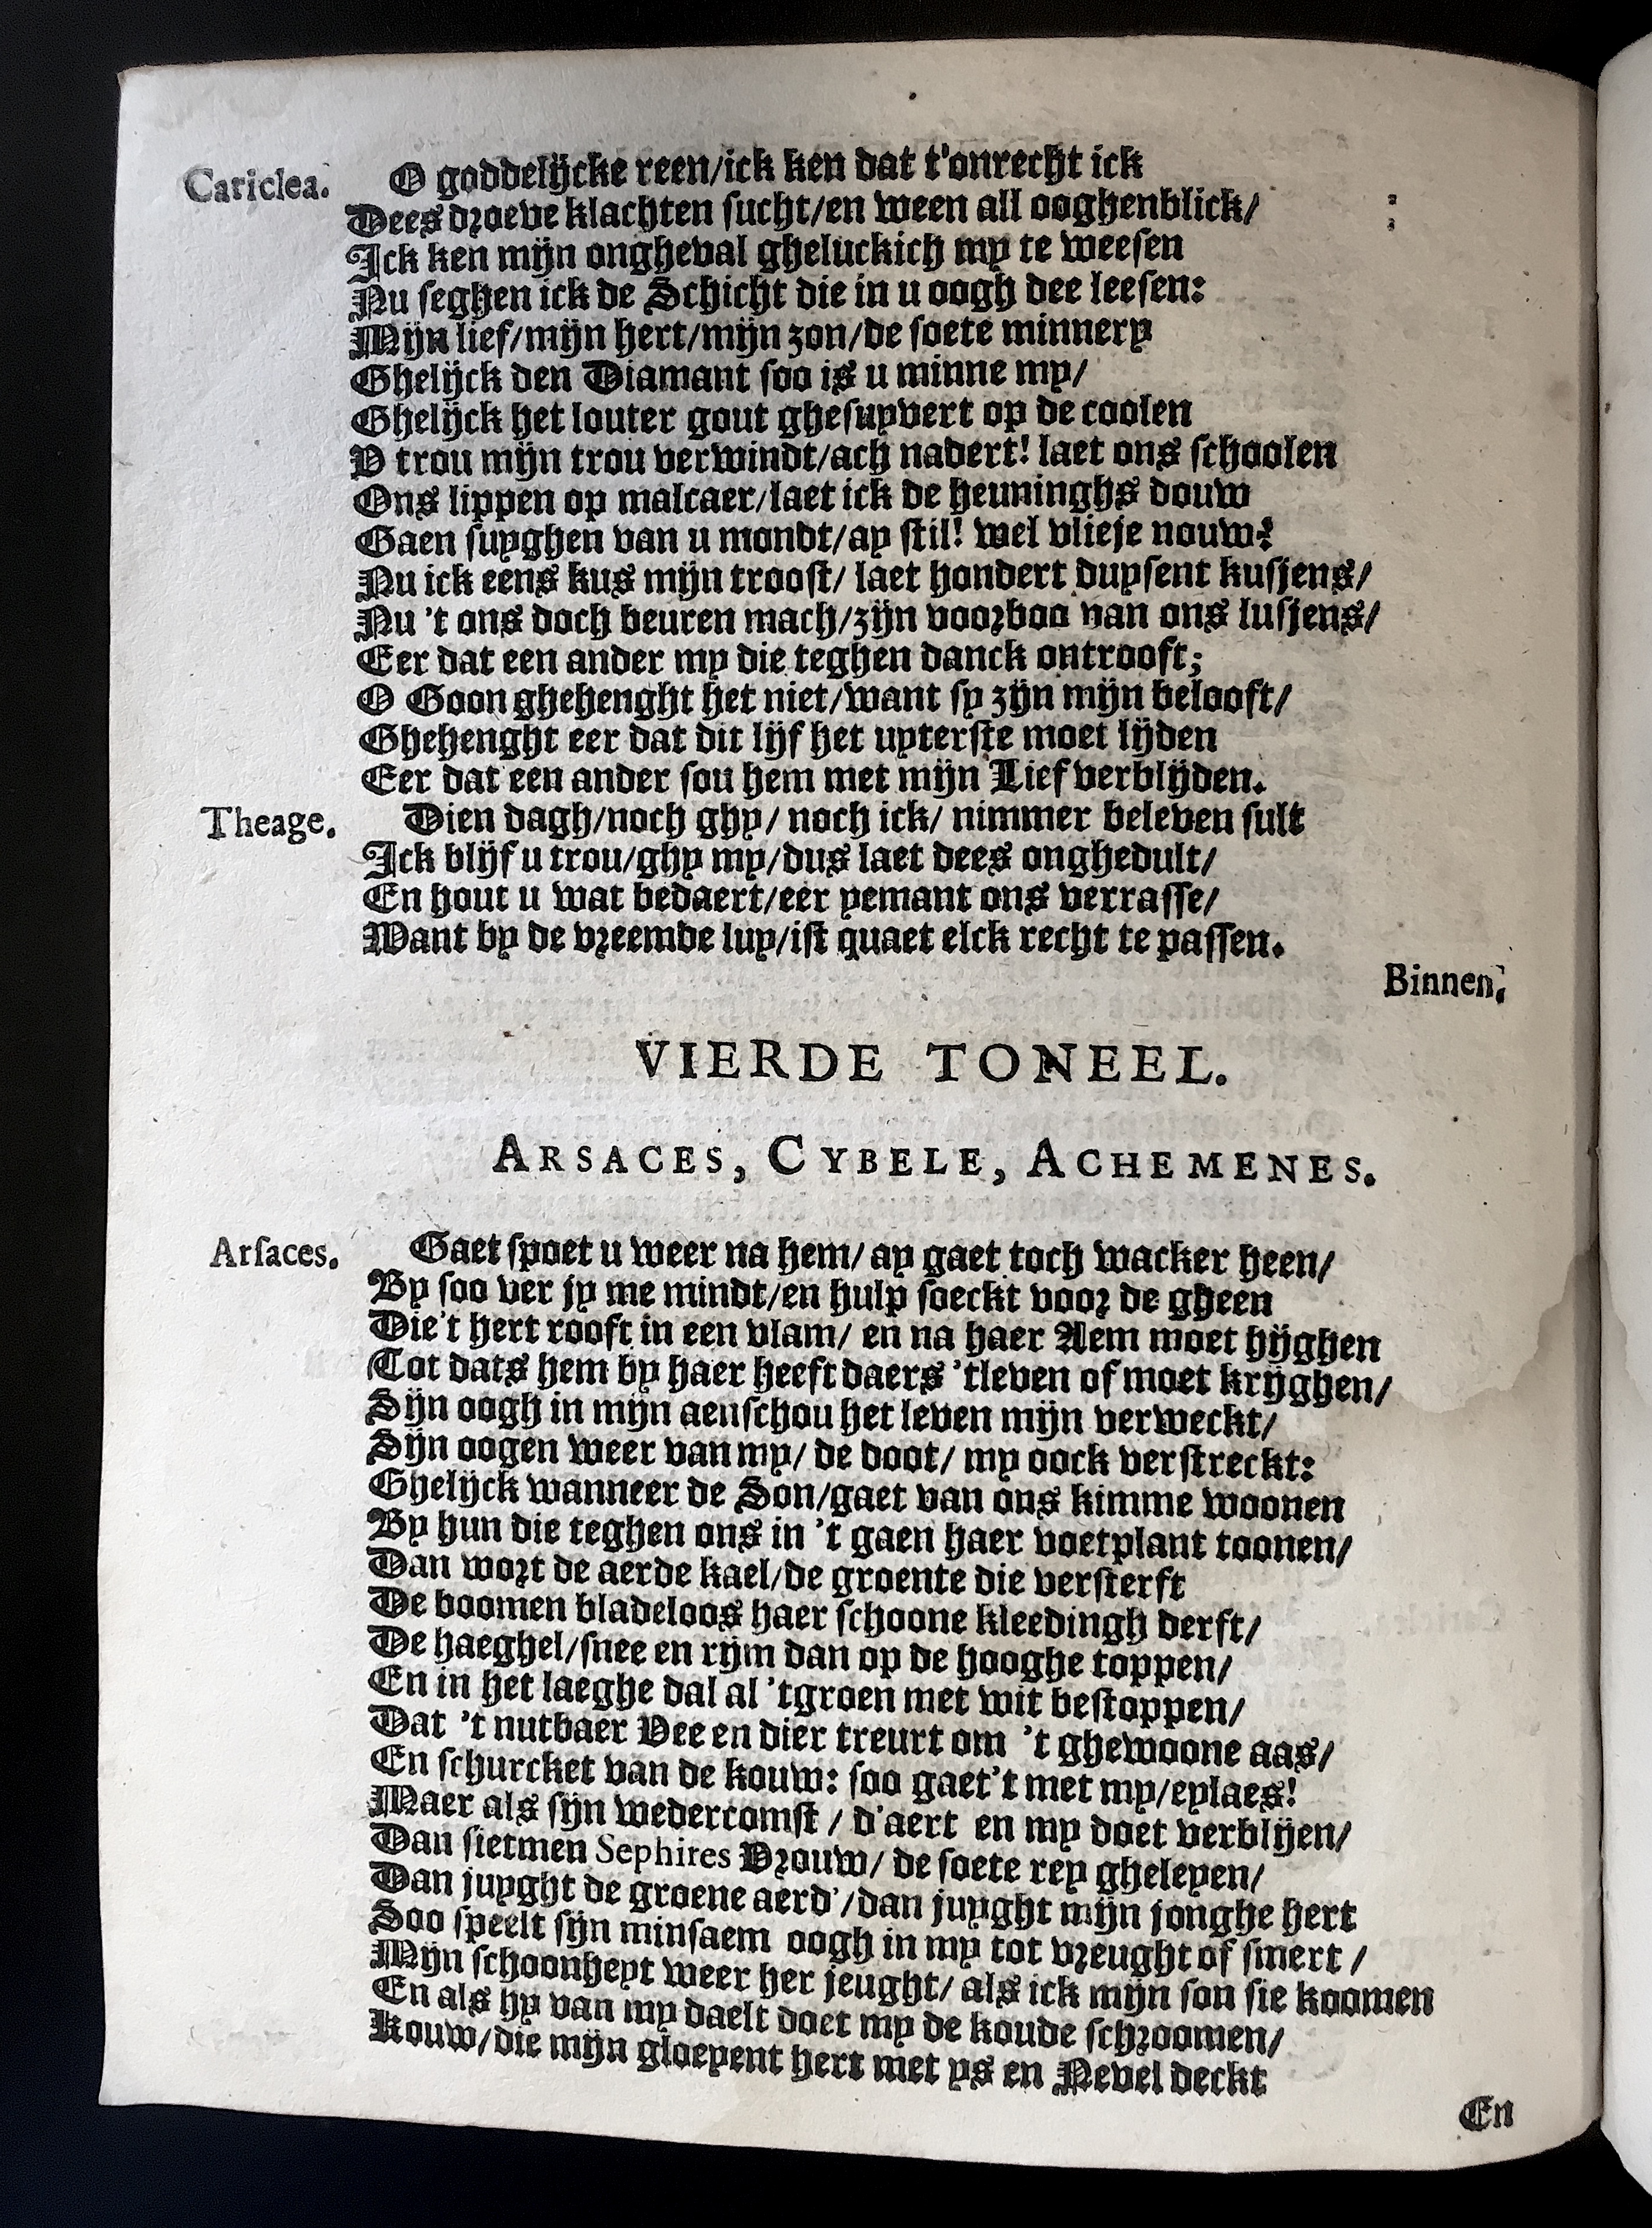 Cariclea. O goddelijcke reen/ick ken dat t'onrecht ick
Dees droeve klachten sucht/en ween all ooghenblick/
Ick ken mijn ongheval gheluckich my te weesen
Nu seghen ick de Schicht die in u oogh dee leesen:
Mijn lief/mijn hert/mijn zon/de soete minnery
Ghelijck den Diamant soo is u minne my/
Ghelijck het louter gout ghesuyvert op de coolen
V trou mijn trou verwindt/ach nadert! laet ons schoolen
Ons lippen op malcaer/laet ick de heuninghs douw
Gaen suyghen van u mondt/ay stil! wel vlieje nouw?
Nu ick eens kus mijn troost/ laet hondert duysent kusjens/
Nu 't ons doch beuren mach/zijn voorboo van ons lusjens/
Eer dat een ander my die teghen danck ontrooft;
O Goon ghehenght het niet/want sy zijn mijn belooft/
Ghehenght eer dat dit lijf het uyterste moet lijden
Eer dat een ander sou hem met mijn Lief verblijden.
Theage. Dien dagh/noch ghy/ noch ick/ nimmer beleven sult
Ick blijf u trou/ghy my/dus laet dees onghedult/
En hout u wat bedaert/eer yemant ons verrasse/
Want by de vreemde luy/ist quaet elck recht te passen.
Binnen.
VIERDE TONEEL.
ARSACES, CYBELE, ACHEMENES.
Arsaces. Gaet spoet u weer na hem/ ay gaet toch wacker heen/
By soo ver jy me mindt/en hulp soeckt voor de gheen
Die't hert rooft in een vlam/ en na haer Aem moet hijghen
Tot dats hem by haer heeft daers 'tleven of moet krijghen/
Sijn oogh in mijn aenschou het leven mijn verweckt/
Sijn oogen weer van my/ de doot/ my oock verstreckt:
Ghelijck wanneer de Son/gaet van ons kimme woonen
By hun die teghen ons in 't gaen haer voetplant toonen/
Dan wort de aerde kael/de groente die versterft
De boomen bladeloos haer schoone kleedingh derft/
De haeghel/snee en rijm dan op de hooghe toppen/
En in het laeghe dal al 'tgroen met wit bestoppen/
Dat 't nutbaer Vee en dier treurt om 't ghewoone aas/
En schurcket van de kouw: soo gaet't met my/eylaes!
Maer als sijn wedercomst / d'aert en my doet verblijen/
Dan sietmen Sephires Vrouw/ de soete rey gheleyen/
Dan juyght de groene aerd'/dan juyght mijn jonghe hert
Soo speelt sijn minsaem oogh in my tot vreught of smert /
Mijn schoonheyt weer her jeught/ als ick mijn son sie koomen
En als hy van my daelt doet my de koude schroomen/
Kouw/die mijn gloeyent hert met ys en Nevel deckt
En